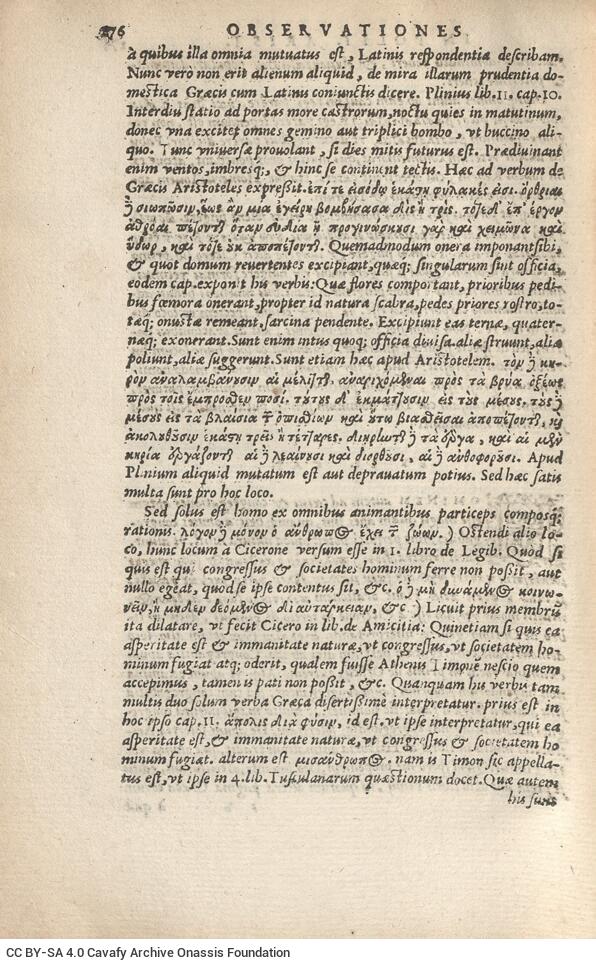 276 OBSERVATIONES
à quibus illa omnia mutuatus est, Latinis respondentia describam.
Nunc verò non erit alienum aliquid, de mira illarum prudentia do-
mestica Græcis cum Latinis coniunctis dicere. Plinius lib. 11. cap. 10.
Interdiu statio ad portas more castrorum, noctu quies in matutinum,
donec vna excitet omnes gemino aut triplici bombo, vt buccino ali-
quo. Tunc vniuersæ prouolant, si dies mitis futurus est. Prædiuinant
enim ventos, imbresq;, & hinc se continent tectis. Hæc ad verbum de
Græcis Aristoteles expreßit. ἐπὶ τε
ἢ τρὶς. ἐπ' ἔργον
ἀθρόαι προγινώσκουσι γὰρ καὶ χειμῶνα καὶ
ὕδωρ, Quemadmodum onera imponant sibi,
& quot domum reuertentes excipiant, quæq; singularum sint officia,
eodem cap. exponit his verbis: Quæ flores comportant, prioribus pedi-
bus fœmora onerant, propter id natura scabra, pedes priores rostro, to-
tæq; onustæ remeant, sarcina pendente. Excipiunt eas ternæ, quater-
næq; exonerant. Sunt enim intus quoq; officia diuisa. aliæ struunt, aliæ
poliunt, aliæ suggerunt. Sunt etiam hæc apud Aristotelem. τὸν
αἱ πρὸς τὰ βρύα ὀξέως
πρὸς τοῖς ἔμπροσθεν ποσί. εἰς τοὺς μέσους.
μέσους εἰς τὰ βλαισὰ
ἑκάστῃ τρεῖς ἢ τέτταρες.
αἱ Apud
Plinium aliquid mutatum est aut deprauatum potius. Sed hæc satis
multa sunt pro hoc loco.
Sed solus est homo ex omnibus animantibus particeps composq;
rationis. λόγον ἢ μόνον ὁ ἄνθρωπος ἔχει τ̃ ζώων.) Ostendi alio lo-
co, hunc locum à Cicerone versum esse in 1. libro de Legib. Quòd si
quis est qui congressus & societates hominum ferre non poßit, aut
nullo egeat, quòd se ipse contentus sit, &c. ὁ ἢ μὴ δυνάμενος κοινω-
νεῖν, ἢ μηδὲν δεόμενος δι' αὐτάρκειαν, &c.) Licuit prius membrū
ita dilatare, vt fecit Cicero in lib. de Amicitia: Quinetiam si quis ea
asperitate est & immanitate naturæ, vt congressus, vt societatem ho-
minum fugiat atq; oderit, qualem fuisse Athenis Timonē nescio quem
accepimus, tamen is pati non poßit, &c. Quanquam his verbis tam
multis duo solùm verba Græca disertißimè interpretatur. prius est in
hoc ipso cap. 11. ἄπολις διὰ φύσιν, id est. vt ipse interpretatur, qui ea
asperitate est, & immanitate naturæ, vt congressus & societatem ho
minum fugiat. alterum est μισάνθρωπος. nam is Timon sic appella-
tus est, vt ipse in 4. lib. Tusculanarum quæstionum docet. Quæ autem
his sunt
CC BY-SA 4.0 Cavafy Archive Onassis Foundation